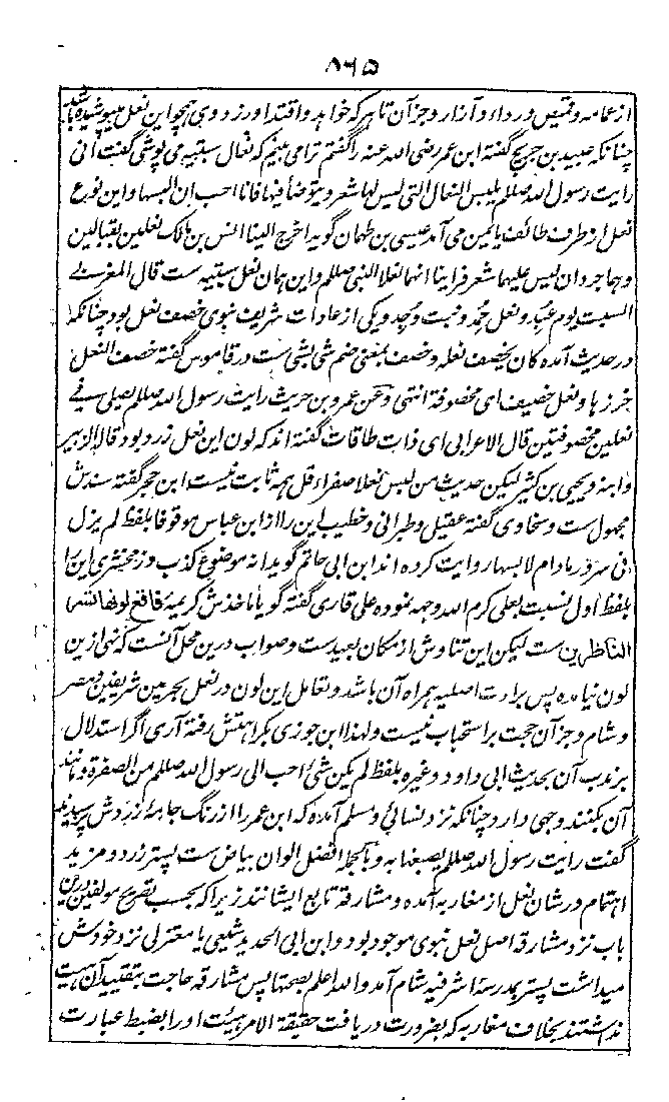 ۸۶۵
از عمامه و قمیص و رداء و آزار و جز آن تا هر که خواهد و اقتدا ورزد وی همچو این نعل میپوشیده باشد
چنانکه عبید بن جریج گفته ابن عمر رضی الله عنه را گفتم ترا می بینم که نعال سبتیه می پوشی گفت انی
رایت رسول الله صللم یلبس النعال التی لیس لها شعر و یتوضأ فیها فانا احب ان البسها و این نوع
نعل از طرف طائف یا یمن می آمد عیسی بن طهمان گوید اخرج الینا انس بن مالک نعلین بقبالین
و هما جردان لیس علیهما شعر فراینا انهما نعلا النبی صللم و این همان نعل سبتیه ست قال المغربی
السبت یوم عید و نعل حمد و نبت وجد و یکی از عادات شریف نبوی خصف نعل بود چنانکه
در حدیث آمده کان یخصف نعله و خصف بمعنی ضم شی بشی ست در قاموس گفته خصف النعل
خرزها و نعل خصیف ای مخصوفة انتهی و عن عمرو بن حریث رایت رسول الله صللم یصلی فی
نعلین مخصوفتین قال الاعرابی ای ذات طاقات گفته اند که لون این نعل زرد بود قاله الزبیر
و ابنه و یحیی بن کثیر لیکن حدیث من لبس نعلا صفراء قل همه ثابت نیست ابن حجر گفته سندش
مجهول ست و سخاوی گفته عقیلی و طبرانی و خطیب این را از ابن عباس موقوفا بلفظ لم یزل
فی سرور مادام لابسها روایت کرده اند ابن ابی حاتم گوید انه موضوع کذب و زمخشری این را
بلفظ اول نسبت بعلی کرم الله وجهه نموده علی قاری گفته گویا ماخذش کریمهٔ فاقع لونها تسر
الناظرین ست لیکن این تناوش از مکان بعید ست و صواب درین محل آنست که نهی ازین
لون نیامده پس برادت اصلیه همراه آن باشد و تعامل این لون در نعل بحرمین شریفین و مصر
و شام و جز آن حجت بر استحباب نیست و لهذا ابن جوزی بکراهتش رفته آری اگر استدلال
بر ندب آن بحدیث ابی داود و غیره بلفظ لم یکن شئ احب الی رسول الله صللم من الصفرة و مانند
آن بکنند وجهی دارد چنانکه نزد نسائی و مسلم آمده که ابن عمر را از رنگ جامهٔ زردش پرسیدند
گفت رایت رسول الله صللم یصبغ بها به و بالجملة افضل الوان بیاض ست پستر زرد و مزید
اهتمام در شان نعل از مغاربه آمده و مشارقه تابع ایشانند زیرا که بحسب تصریح مولفین درین
باب نزد مشارقه اصل نعل نبوی موجود بود و ابن ابی الحدید شیعی یا معتزلی نزد خودش
میداشت پستر بمدرسهٔ اشرفیه شام آمد و الله اعلم بصحتها پس مشارقه حاجت بتقیید آن هیئت
نداشتند بخلاف مغاربه که بضرورت دریافت حقیقة الامر هیئت او را بضبط عبارت